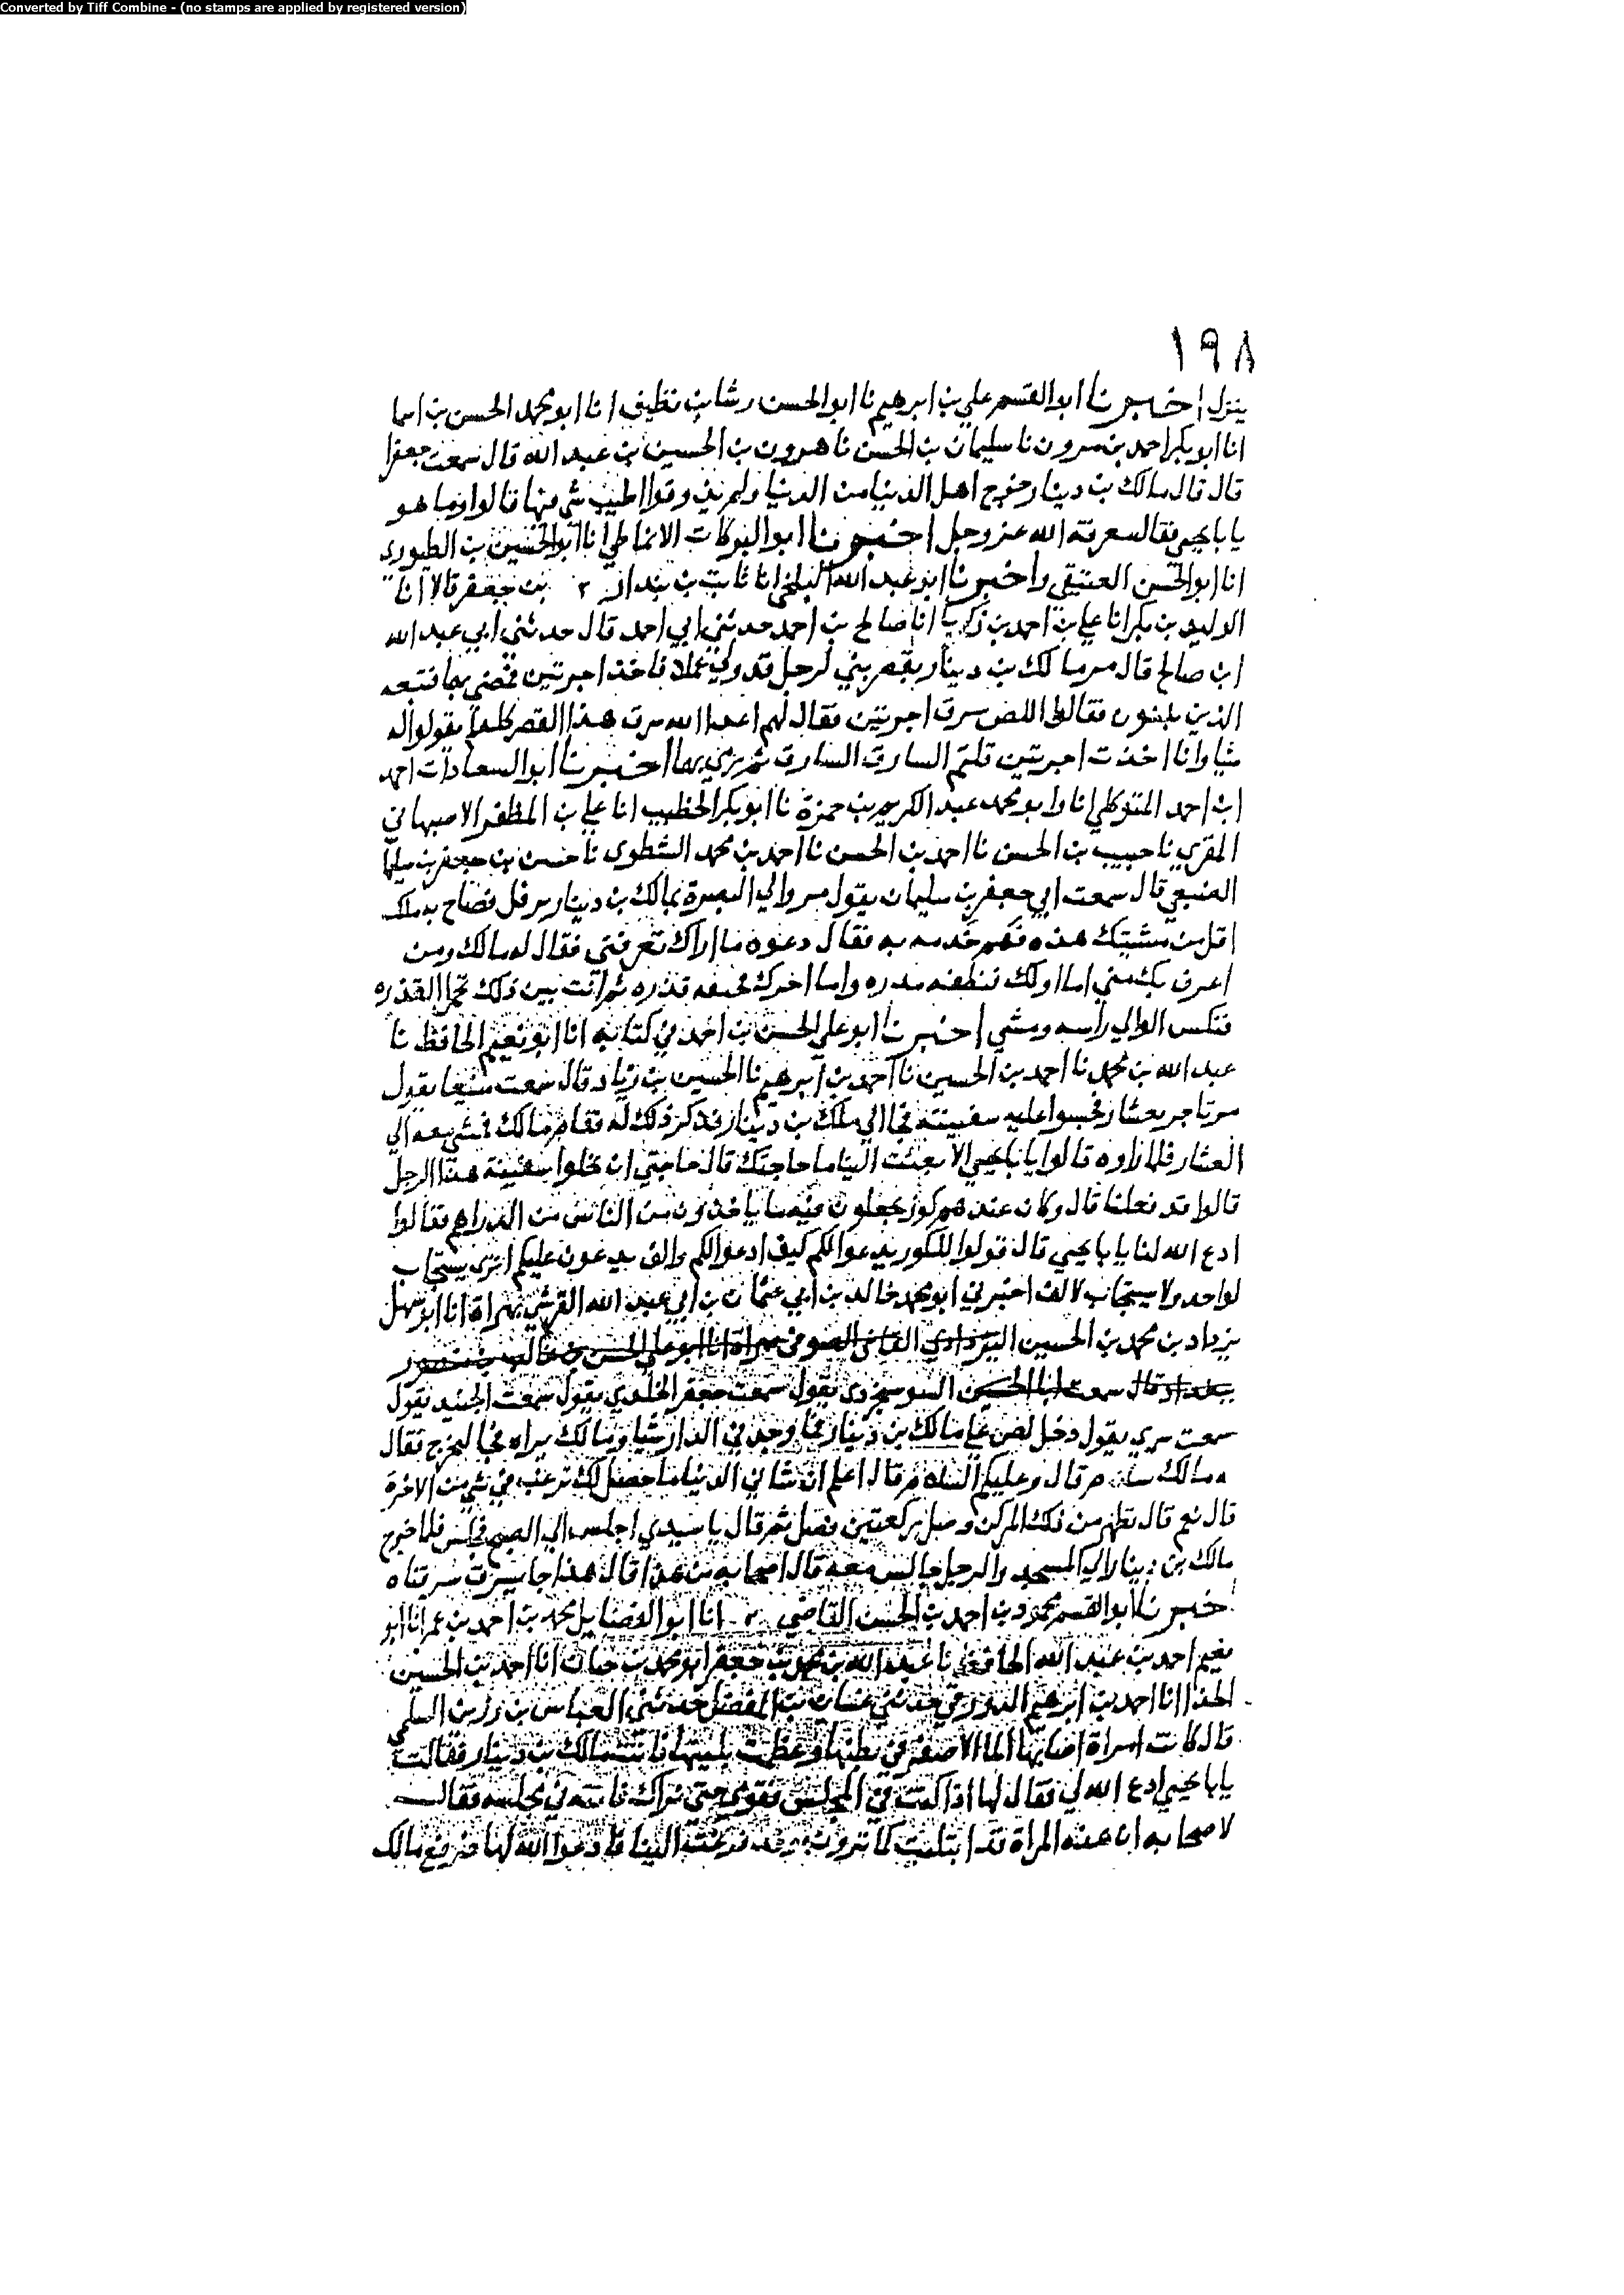 Converted by Tiff Combine - (no stamps are applied by registered version)
١٩٨
ينزل اخبرنا ابو القسم علي بن ابرهيم نا ابو الحسن رشا بن نظيف انا ابو محمد الحسن بن اسما
انا ابو بكر احمد بن مرون نا سليمان بن الحسن نا هرون بن الحسين بن عبد الله قال سمعت جعفرا
قال قال مالك بن دينار خرج اهل الدنيا من الدنيا ولم يذوقوا اطيب شي منها قالوا وما هو
يا با يحيى فقال معرفة الله عز وجل اخبرنا ابو البركات الانماطي انا ابو الحسين بن الطيوري
انا ابو الحسن العتيقي واخبرنا ابو عبد الله البلخي انا ثابت بن بندار ٢ بن جعفر قالا انا
الوليد بن بكر انا علي بن احمد بن زكريا انا صالح بن احمد حدثني ابي احمد قال حدثني ابي عبد الله
ابن صالح قال مر مالك بن دينار بقصر يبني لرجل قد ولي عملا فاخذ اجرتين فمضى بهما فتبعه
الذين يبنون فقالوا اللص سرق اجرتين فقال لهم اعدا الله سرق هذا القصر كله لم يقولوا له
شيا وانا اخذت اجرتين قلتم السارق السارق ثم رمى بهما اخبرنا ابو السعادات احمد
ابن احمد المتوكلي انا وابو محمد عبد الكريم بن حمزة نا ابو بكر الخطيب انا علي بن المظفر الاصبهاني
المقري نا حبيب بن الحسن نا احمد بن الحسن نا احمد بن محمد الشطوى نا حسن بن جعفر بن سليما
الضبعي قال سمعت ابي جعفر بن سليمان يقول مر والي البصرة بمالك بن دينار يرفل فصاح به ملك
اقل من مشيتك هذه فهم خدمه به فقال دعوه ما اراك تعرفني فقال له مالك ومن
اعرف بك مني اما اولك فنطفه مذره واما اخرك فجيفه قذره ثم انت بين ذلك تحمل القذره
فنكس الوالي راسه ومشي اخبرنا ابو علي الحسن بن احمد في كتابه انا ابو نعيم الحافظ نا
عبد الله بن محمد نا احمد بن الحسين نا احمد بن ابرهيم نا الحسين بن زياد قال سمعت منيعا يقول
مر تاجر بعشار فحبسوا عليه سفينته فجا الي ملك بن دينار فذكر ذلك له فقام مالك فمشي معه الي
العشار فلما راوه قالوا يا با يحيي الا بعثت الينا ما حاجتك قال حاجتي ان تخلوا سفينة هذا الرجل
قالوا قد فعلنا قال وكان عندهم كوز يجعلون فيه ما ياخذون من الناس من الدراهم فقالوا
ادع الله لنا يا با يحيي قال قولوا للكوز يدعوا لكم كيف ادعوا لكم والف يدعون عليكم اترى يستجاب
لواحد ولا يستجاب لالف اخبرني ابو محمد خالد بن ابي عثمان بن ابي عبد الله القرشي بهراة انا ابو سهل
يزداد بن محمد بن الحسين اليزدادي القاضي الصوفي بهراة انا ابو علي الحسن بن غالب بن منصور
ببغداد قال سمعت ابا الحسين السوسنجردى يقول سمعت جعفر الخلدي يقول سمعت الجنيد يقول
سمعت سري يقول دخل لص على مالك بن دينار فما وجد في الدار شيا ومالك يراه فجا ليخرج فقال
مالك سلام قال وعليكم السلام قال اعلم ان شاني الدنيا ما حصل لك ترغب في شي من الاخرة
قال نعم قال تطهر من ذلك المركن وصل ركعتين فصلى ثم قال يا سيدي اجلس الي الصبح فجلس فلما خرج
مالك بن دينار الي المسجد والرجل جالس معه قال اصحابه من هذا قال هذا جا يسرق سرقناه
اخبرنا ابو القسم محمود بن احمد بن الحسن القاضي انا ابو الفضايل محمد بن احمد بن عمر انا ابو
نعيم احمد بن عبد الله الحافظ نا عبد الله بن محمد بن جعفر ابو محمد بن حيان انا احمد بن الحسين
الحذا انا احمد بن ابرهيم الدورقي حدثني غسان بن المفضل حدثني العباس بن رزين السلمي
قال كانت امراة اصابها الما الاصفر في بطنها وعظمت بليتها فاتت مالك بن دينار فقالت
يا با يحيي ادع الله لي فقال لها اذا كنت في المجلس فقومي حتى نراك فاتته في مجلسه فقال
لاصحابه ان هذه المراة قد ابتليت كما ترون وقد فزعت الينا فادعوا الله لها فرفع مالك